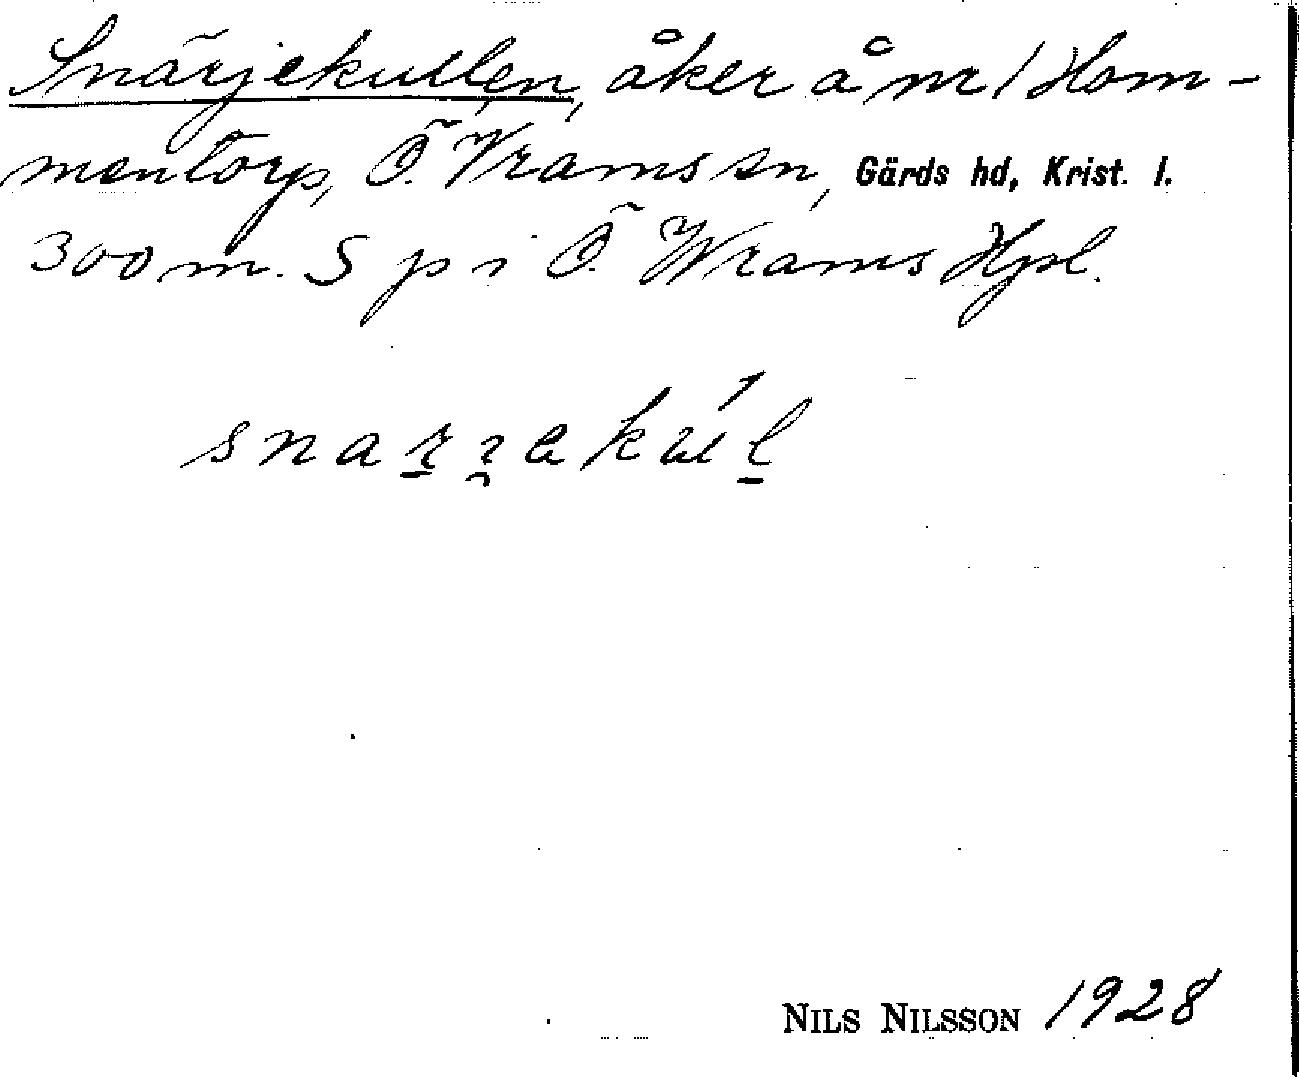 Snärjekullen, åker å nr 1 Hom-
mentorp, Ö. Vrams sn, Gärds hd, Krist. l.
300 m. S p i Ö. Wrams Hpl.
NILS NILSSON 1928